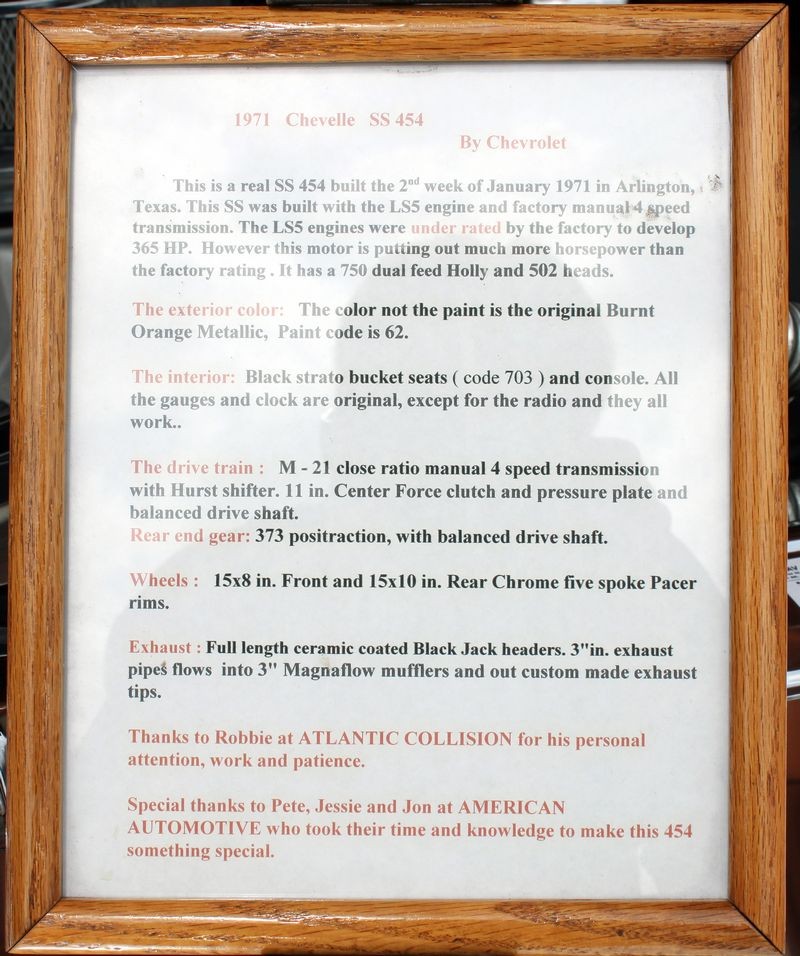 1971 Chevelle SS 454
By Chevrolet
This is a real SS 454 built the 2nd week of January 1971 in Arlington,
Texas. This SS was built with the LS5 engine and factory manual 4 speed
transmission. The LS5 engines were under rated by the factory to develop
365 HP. However this motor is putting out much more horsepower than
the factory rating . It has a 750 dual feed Holly and 502 heads.
The exterior color: The color not the paint is the original Burnt
Orange Metallic, Paint code is 62.
The interior: Black strato bucket seats ( code 703 ) and console. All
the gauges and clock are original, except for the radio and they all
work..
The drive train : M - 21 close ratio manual 4 speed transmission
with Hurst shifter. 11 in. Center Force clutch and pressure plate and
balanced drive shaft.
Rear end gear: 373 positraction, with balanced drive shaft.
Wheels : 15x8 in. Front and 15x10 in. Rear Chrome five spoke Pacer
rims.
Exhaust : Full length ceramic coated Black Jack headers. 3"in. exhaust
pipes flows into 3" Magnaflow mufflers and out custom made exhaust
tips.
Thanks to Robbie at ATLANTIC COLLISION for his personal
attention, work and patience.
Special thanks to Pete, Jessie and Jon at AMERICAN
AUTOMOTIVE who took their time and knowledge to make this 454
something special.